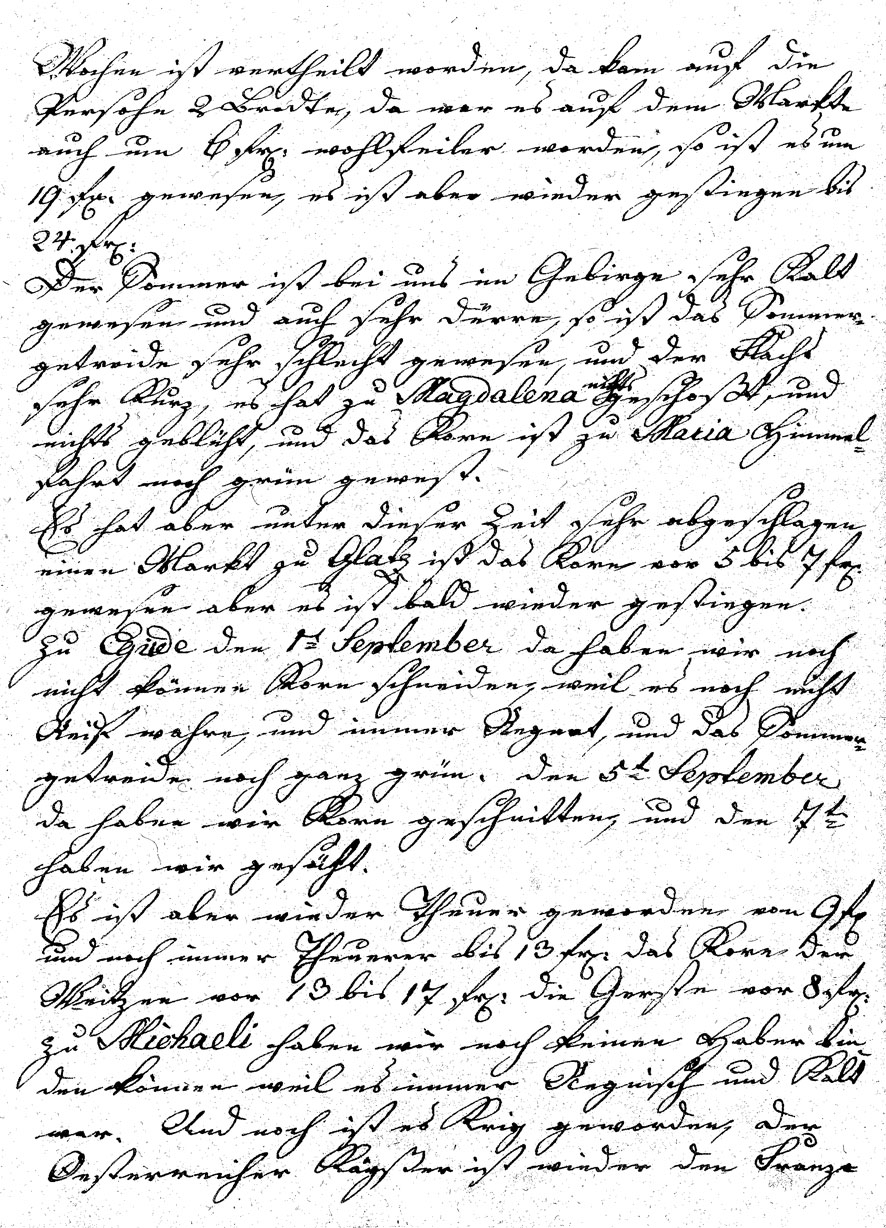 Wochen ist vertheilt worden, da kam auf die
Persohn 2 Brodte, da war es auf dem Markte
auch um 6 fr: wohlfeiler worden, so ist es um
19 fr: gewesen, es ist aber wieder gestiegen bis
24. fr:
Der Sommer ist bei uns im Gebirge sehr Kalt
gewesen und auch sehr dürre, so ist das Sommer-
getreide sehr schlecht gewesen, und der Flachs
sehr Kurz, es hat zu Magdalena nichts geschoßt, und
nichts geblüht, und das Korn ist zu Maria Himmel-
fahrt noch grün gewest.
Es hat aber unter dieser Zeit sehr abgeschlagen
einen Markt zu Glatz ist das Korn vor 5 bis 7 fr:
gewesen aber es ist bald wieder gestiegen.
Zu Egide den 1t September da haben wir noch
nicht können Korn schneiden, weil es noch nicht
Reif wahre, und immer Regnet, und das Sommer-
getreide noch ganz grün. den 5t September
da haben wir Korn geschnitten, und den 7t
haben wir gesäht.
Es ist aber wieder Theuer geworden von 9 fr
und noch immer Theuerer bis 13 fr: das Korn der
Weitzen vor 13 bis 17 fr: die Gerste vor 8 fr:
zu Michaeli haben wir noch keinen Haber bin
den können weil es immer Regnisch und Kalt
war. Und noch ist es Krig geworden, der
Oesterreicher Käyßer ist wieder den Franzo